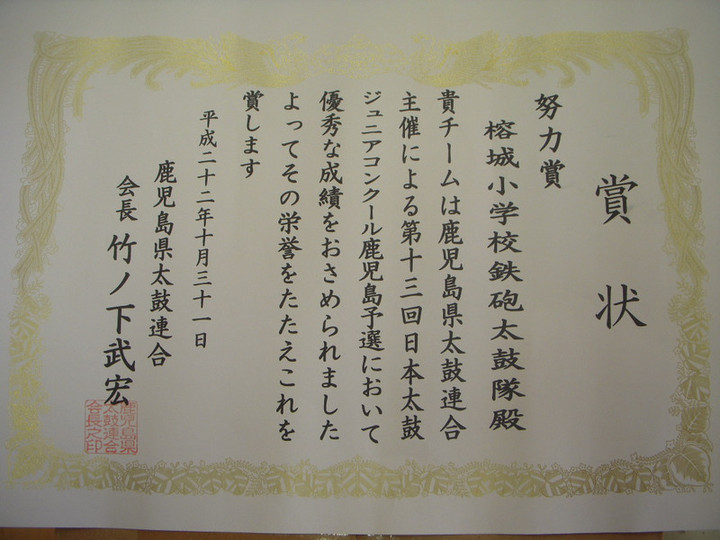 賞状
努力賞
榕城小学校鉄砲太鼓隊殿
貴チームは鹿児島県太鼓連合
主催による第十三回日本太鼓
ジュニアコンクール鹿児島予選において
優秀な成績をおさめられました
よってその栄誉をたたえこれを
賞します
平成二十二年十月三十一日
鹿児島県太鼓連合
会長 竹ノ下武宏
鹿児島県
太鼓連合
会長之印